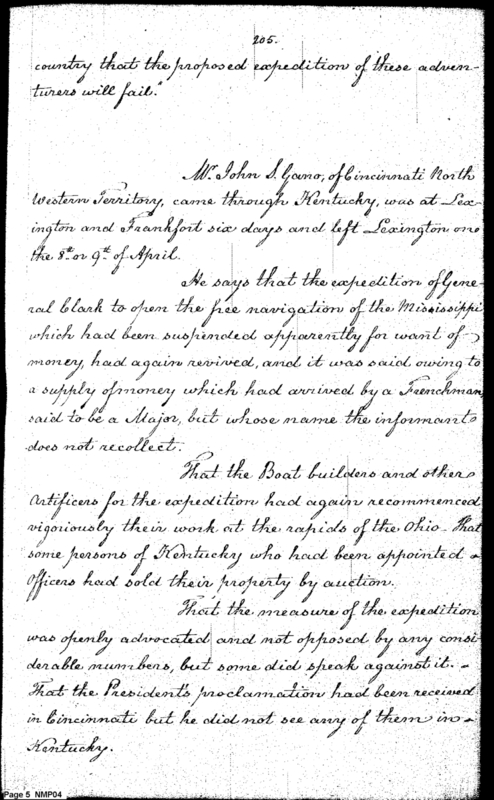 205.
country that the proposed expedition of these adven-
turers will fail."
Mr. John S. Gano, of Cincinnati North
Western Territory, came through Kentucky, was at Lex-
ington and Frankfort six days and left Lexington on
the 8th. or 9th. of April.
He says that the expedition of Gene-
ral Clark to open the free navigation of the Mississippi
which had been suspended apparently for want of
money, had again revived, and it was said owing to
a supply of money which had arrived by a Frenchman,
said to be a Major, but whose name the informant
does not recollect.
That the Boat builders and other
Artificers for the expedition had again recommenced
vigoriously their work at the rapids of the Ohio - That
some persons of Kentucky who had been appointed
Officers had sold their property by auction.
That the measure of the expedition
was openly advocated and not opposed by any consi-
derable numbers, but some did speak against it. -
That the President's proclamation had been received
in Cincinnati but he did not see any of them in
Kentucky.
Page 5 NMP04